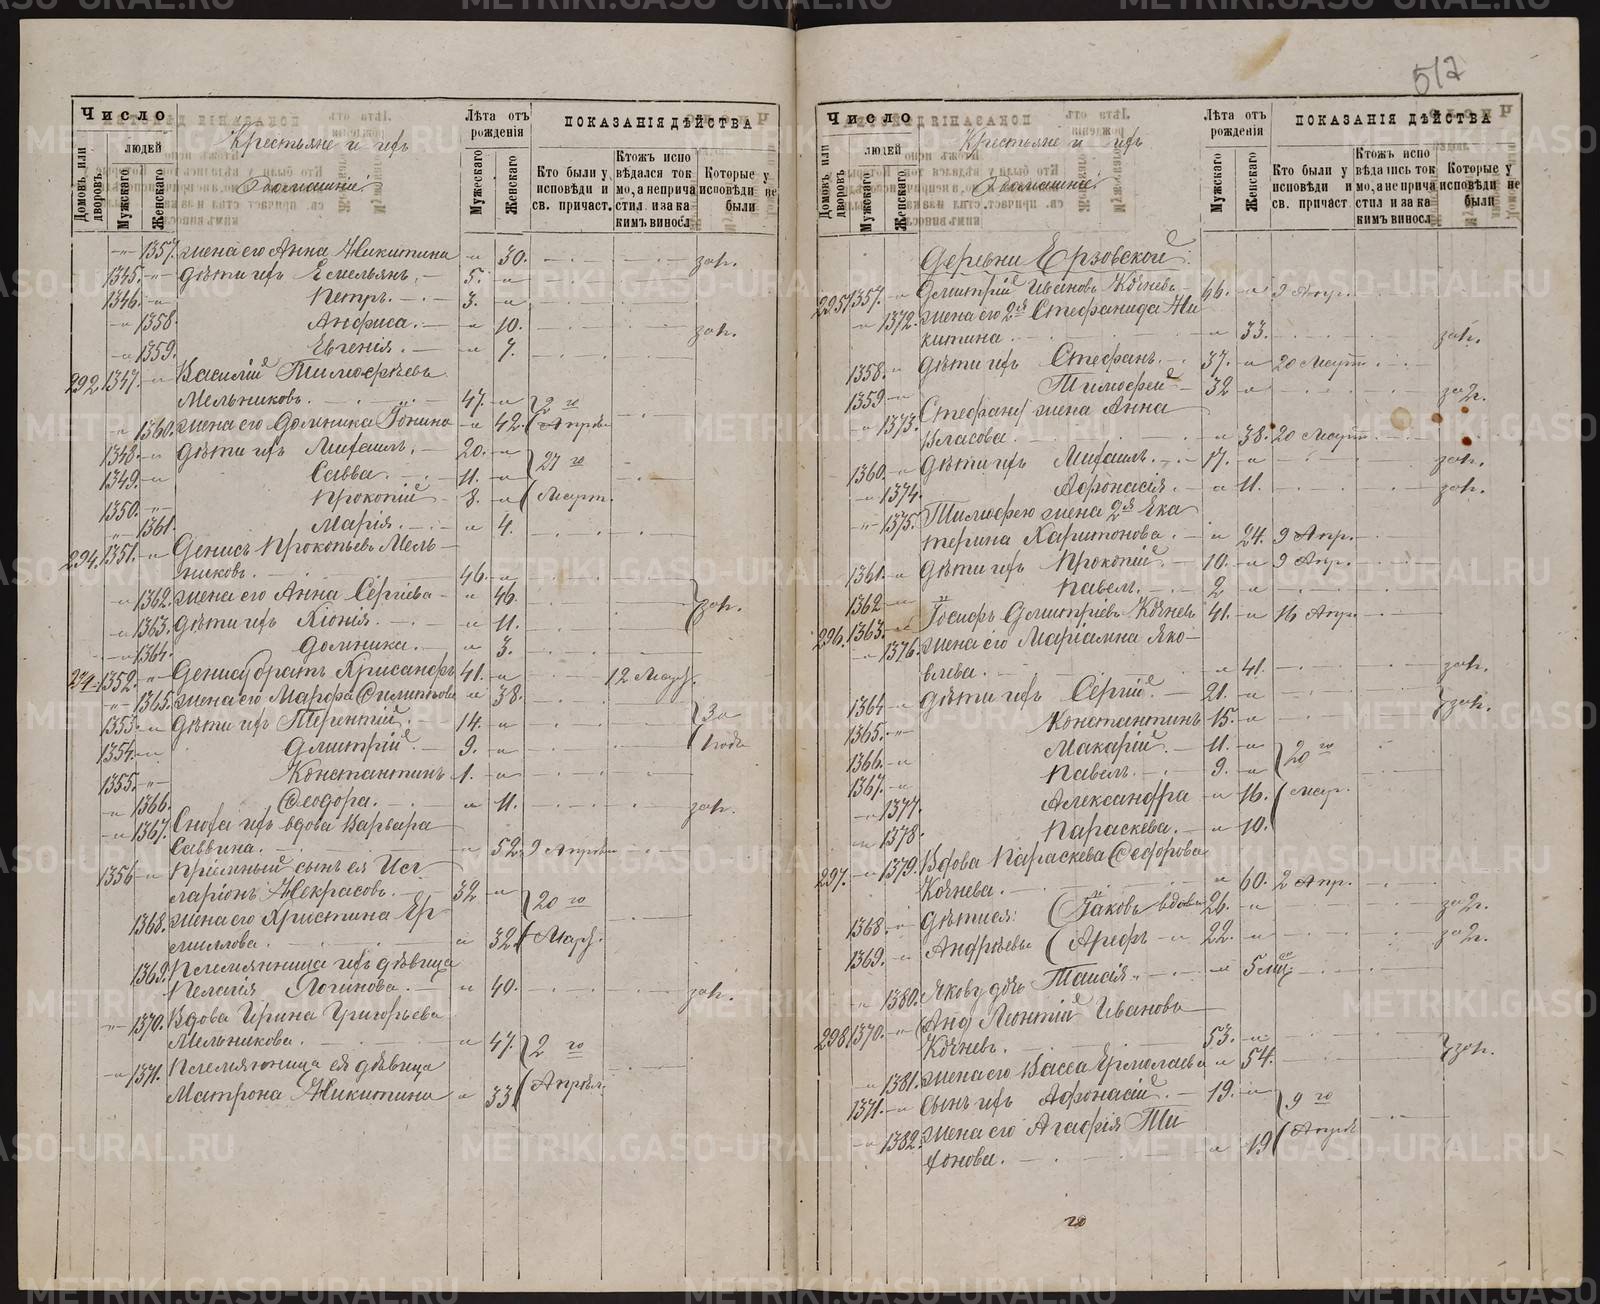 517
Число
людей
Домовъ или дворовъ
Мужскаго
Женскаго
Крестьяне и ихъ
домашніе
Лѣта отъ рожденія
Мужескаго
Женскаго
ПОКАЗАНІЯ ДѢЙСТВА
Кто были у исповѣди и св. причаст.
Ктожъ исповѣдался токмо, а не причастил и за каким винosл
Которые у исповѣди не были
1357. жена его Анна Никитина 30. зап.
1345. дѣти ихъ Емельянъ. 5.
1346. Петръ. 3.
1358. Анфиса. 10. зап.
1359. Евгенія. 7.
292. 1347. Василій Тимофѣевъ
Мельниковъ. 47. 2 го
1360. жена его Домника Іонина 42. Апрѣл
1348. дѣти ихъ Михаилъ. 20. 27 го
1349. Савва. 11.
1350. Прокопій 8. Март.
1361. Марія. 4.
294. 1351. Денисъ Прокопьевъ Мель-
никовъ. 46.
1362. жена его Анна Сергіева 46. зап.
1363. дѣти ихъ Хіонія. 11.
1364. Домника. 3.
1352. Дениса братъ Хрисанфъ 41. 12 Мар.
1365. жена его Марфа 38.
1353. дѣти ихъ Терентій. 14. За
1354. Дмитрій. 9.
1355. Константинъ 1.
1366. Ѳеодора. 11. зап.
1367. Сноха ихъ вдова Варвара
Саввина. 52. 9 Апрѣл
1356 Пріемный сынъ ея Ис
Некрасовъ. 32 20 го
1368. жена его Христина Ер
милова. 32. Мар.
1369. Племянница ихъ дѣвица
Пелагія Логинова. 40. зап.
1370. Вдова Ирина Григорьева
Мельникова. 47. 2 го
1371. Племянница ея дѣвица
Матрона Никитина 33 Апрѣл.
Число
людей
Домовъ или дворовъ
Мужскаго
Женскаго
Крестьяне и ихъ
домашніе
Лѣта отъ рожденія
Мужскаго
Женскаго
ПОКАЗАНІЯ ДѢЙСТВА
Кто были у исповѣди и св. причаст
Ктожъ исповѣдались токмо, а не причастил и за каким винosл
Которые у исповѣди не были
Деревни Ерзовской
295. 1357. Дмитрій Ивановъ Кочневъ 66. 9 Апр.
1372. жена его 2я Стефанида Ни
китина. 33. зап.
1358. дѣти ихъ Стефанъ. 37. 20 Март
1359 Тимофей 32 за 2г.
1373. Стефана жена Анна
Власова. 38. 20 Март
1360. дѣти ихъ Михаилъ. 17. зап.
1374. Афонасія. 11. зап.
1375. Тимофею жена 2я Ека
терина Харитонова. 24. 9 Апр.
1361. дѣти ихъ Прокопій 10. 9 Апр.
1362 Павелъ. 2
296. 1363. Іосифъ Дмитріевъ Кочневъ 41. 16 Апр.
1376. жена его Маріамна Яко-
влева. 41. зап.
1364 дѣти ихъ Сергій. 21. зап.
1365. Константинъ 15.
1366. Макарій. 11. 20 го
1367. Павелъ. 9.
1377. Александра 16. Мар.
1378. Параскева. 10.
297. 1379. Вдова Параскева Ѳедорова
Кочнева. 60. 2 Апр.
1368 дѣти ея: Іаковъ вдовъ 26. за 2г.
1369. Андрѣевы Арефъ 22. за 2г.
1380. Якову дочь Таисія 5 мцъ
298 1370. Леонтій Ивановъ
Кочневъ. 53.
1381. жена его Васса Ермолаева 54. зап.
1371. Сынъ ихъ Афонасій. 19. 9 го
1382. жена его Агафія Ти
хонова. 19 Апрѣл
20
METRIKI.GASO-URAL.RU